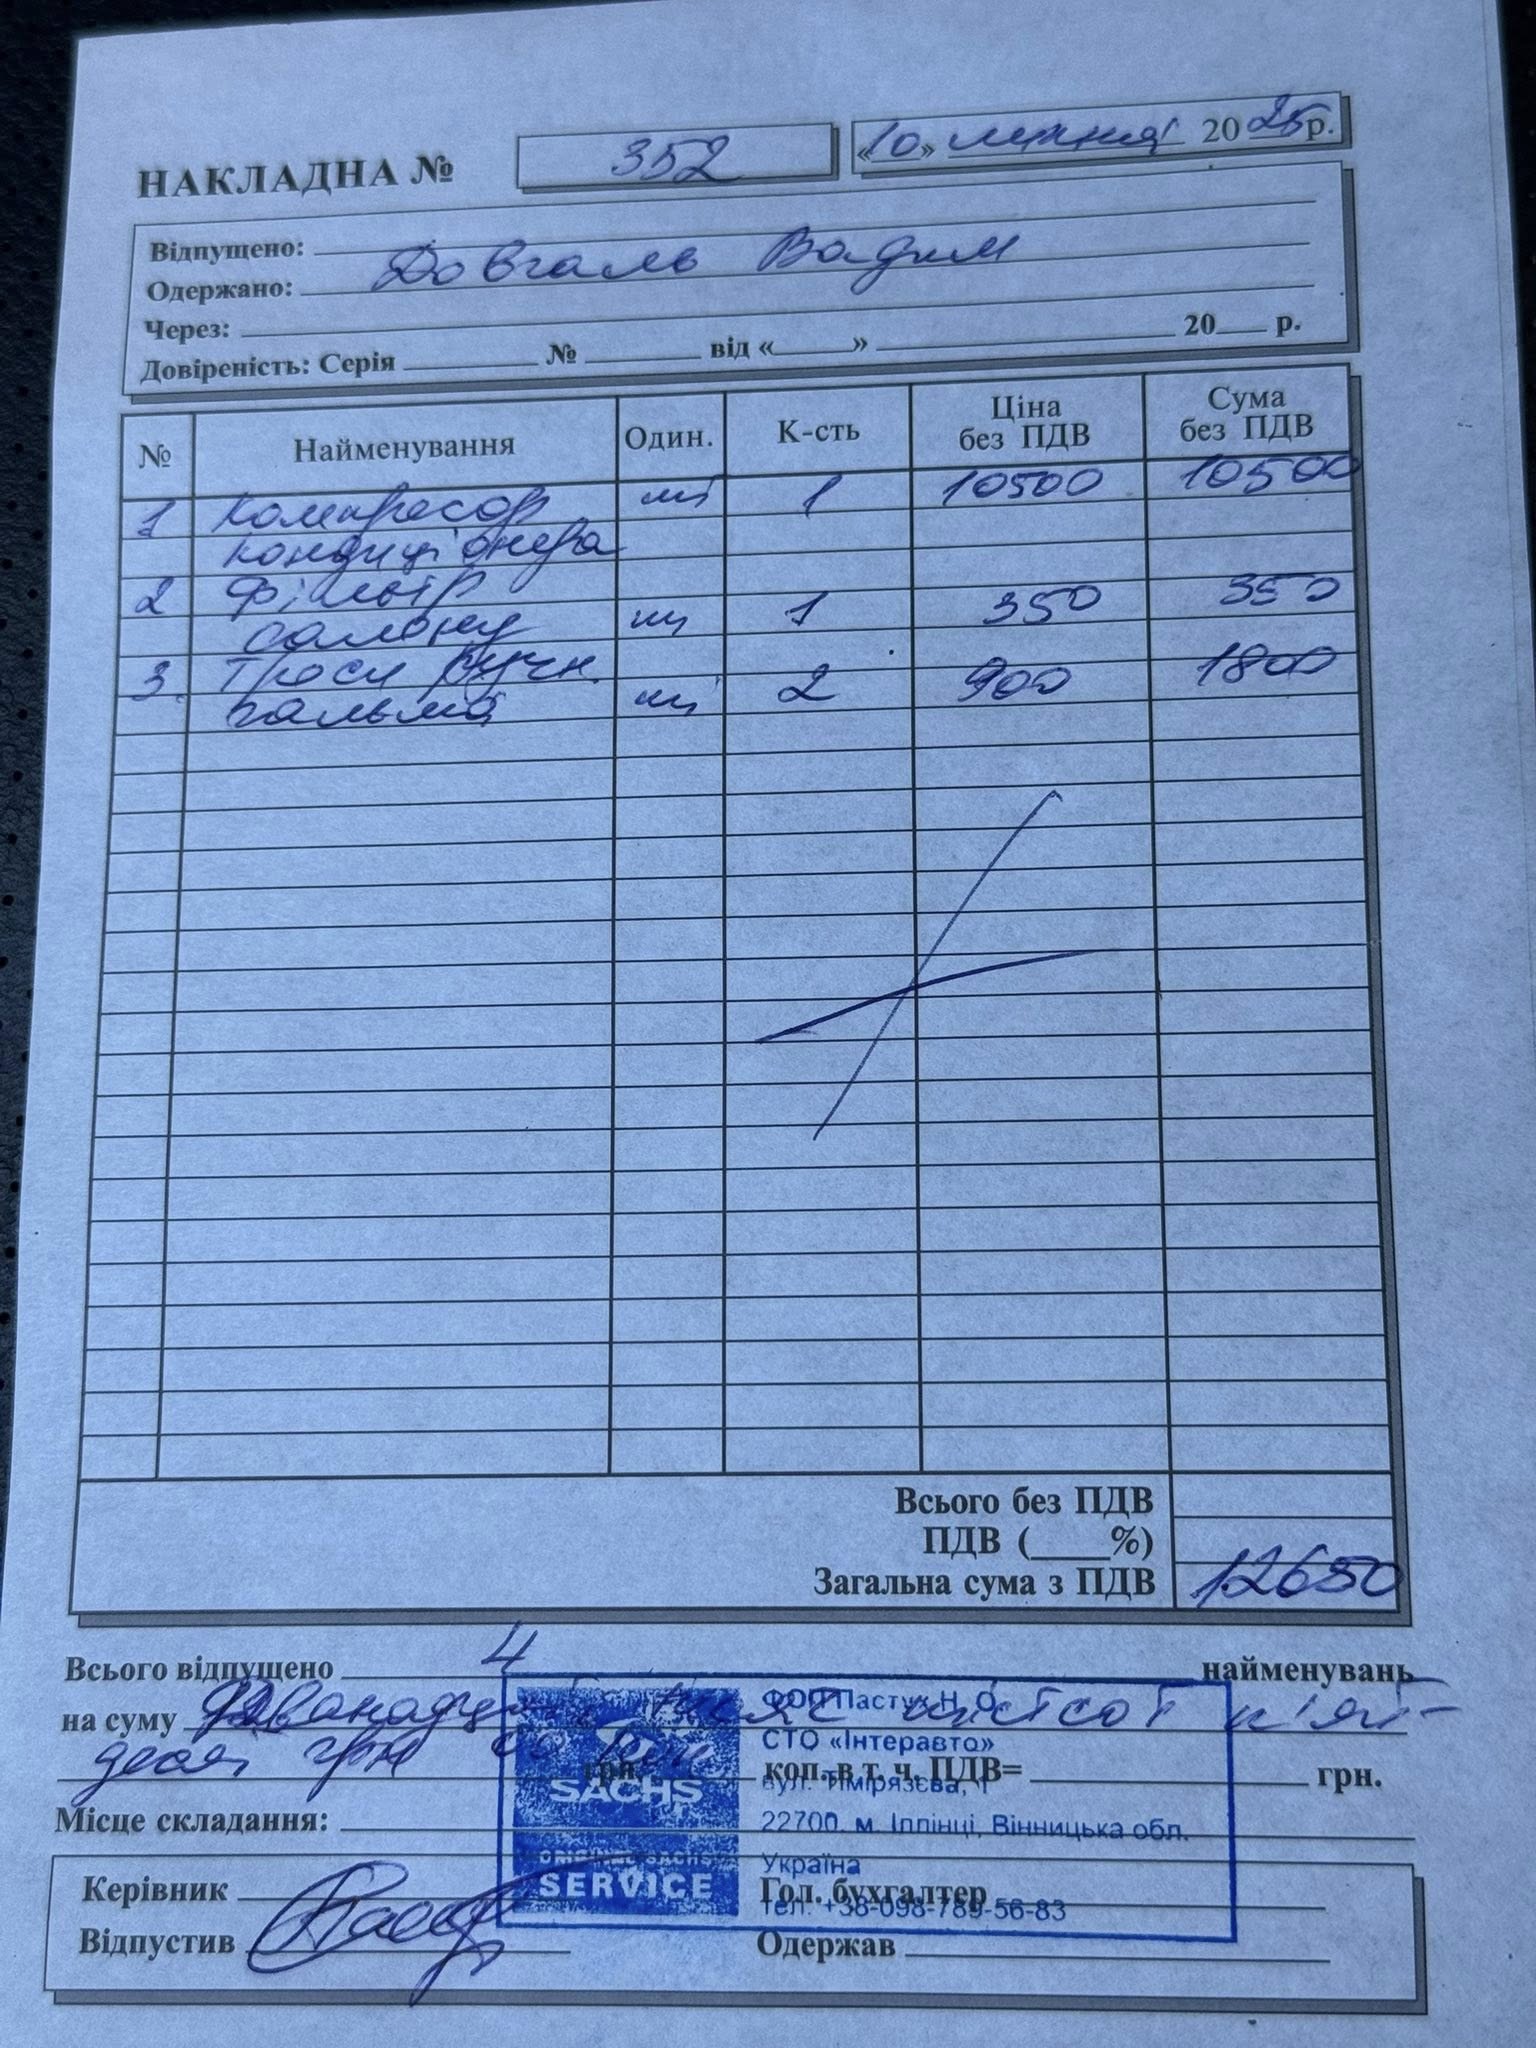 НАКЛАДНА № 352 «10» липня 2025р.
Відпущено:
Одержано: Довгаль Вадим
Через:
Довіреність: Серія № від « » 20 р.
№ Найменування Один. К-сть Ціна без ПДВ Сума без ПДВ
1 Компресор шт 1 10500 10500
кондиціонера
2 Фільтр 350
салону шт 1 350
3. Троси ручн. 1800
гальма шт 2 900
Всього без ПДВ
ПДВ ( %)
Загальна сума з ПДВ 12650
Всього відпущено 4 найменувань
на суму Дванадцять тисяч шістсот п'ят-
десят грн 00 коп. грн. коп. в т. ч. ПДВ= грн.
Місце складання:
Керівник Гол. бухгалтер
Відпустив Одержав
SACHS
ORIGINAL SACHS
SERVICE
ФОП Пастух Н. О.
СТО «Інтеравто»
вул. Тімірязєва, 1
22700, м. Іллінці, Вінницька обл.
Україна
тел. +38-098-789-56-83